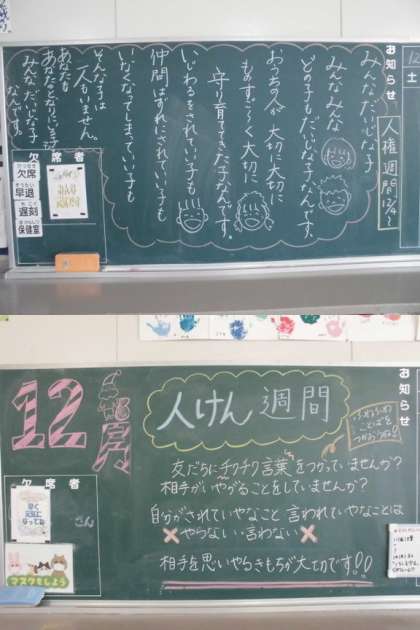 お知らせ
人権週間
12/4〜
12
土
みんなだいじな子
みんなみんな
どの子もだいじな子なんです。
おうちの人が大切に大切に
ものすごーく大切に
守り育ててきた子なんです。
いじわるをされていい子も
仲間はずれにされていい子も
いなくなってしまっていい子も
そんな子は
一人もいません。
あなたも
あなたのとなりにいる子も
みんなだいじな子
なんです。
欠席者
欠席
早退
遅刻
保健室
お知らせ
12
人けん週間
ふわふわ
ことばを
つかおうね
友だちにチクチク言葉をつかっていませんか？
相手がいやがることをしていませんか？
自分がされていやなこと 言われていやなことは
×やらない・言わない×
相手を思いやるきもちが大切です!!
欠席者
早く
元気に
なってね
さん
マスクをしよう